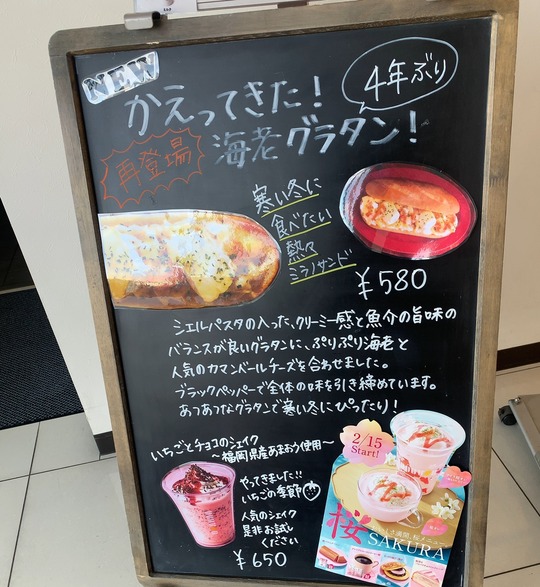 NEW
かえってきた!
4年ぶり
再登場
海老グラタン!
寒い冬に
食べたい
熱々
ミラノサンド
¥580
シェルパスタの入った、クリーミー感と魚介の旨味の
バランスが良いグラタンに、ぷりぷり海老と
人気のカマンベールチーズを合わせました。
ブラックペッパーで全体の味を引き締めています。
あつあつなグラタンで寒い冬にぴったり!
いちごとチョコのシェイク
~福岡県産あまおう使用~
やってきました!!
いちごの季節
人気のシェイク
是非お試し
ください
¥650
2/15
Start!
桜
SAKURA